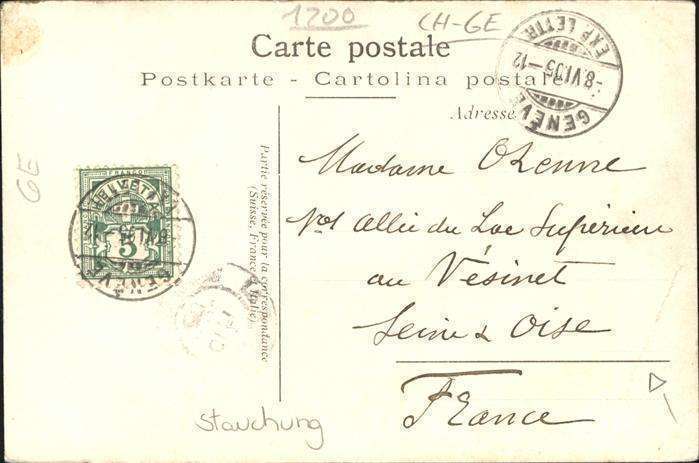 1200
CH-GE
Carte postale
Postkarte - Cartolina postale
Adresse
GENÈVE
8.VI.05-12
EXP. LETTR.
Madame
allée du Lac Supérieur
au Vésinet
Seine & Oise
France
Partie réservée pour la correspondance
(Suisse, France & Italie)
GE
FRANCO
HELVETIA
5
GENÈVE
Stauchung